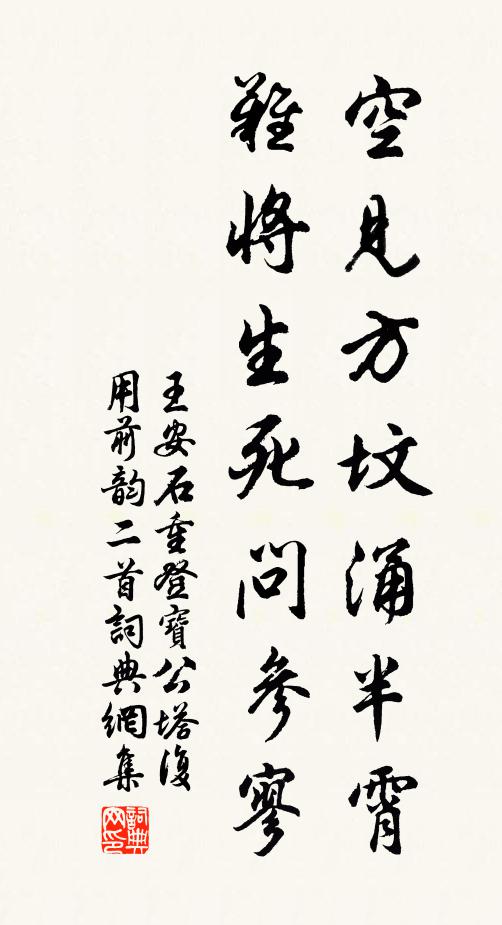 空見方坟涌半霄
難將生死問參寥
王安石重登寶公塔復
用前韵二首詞典網集
詞典網印